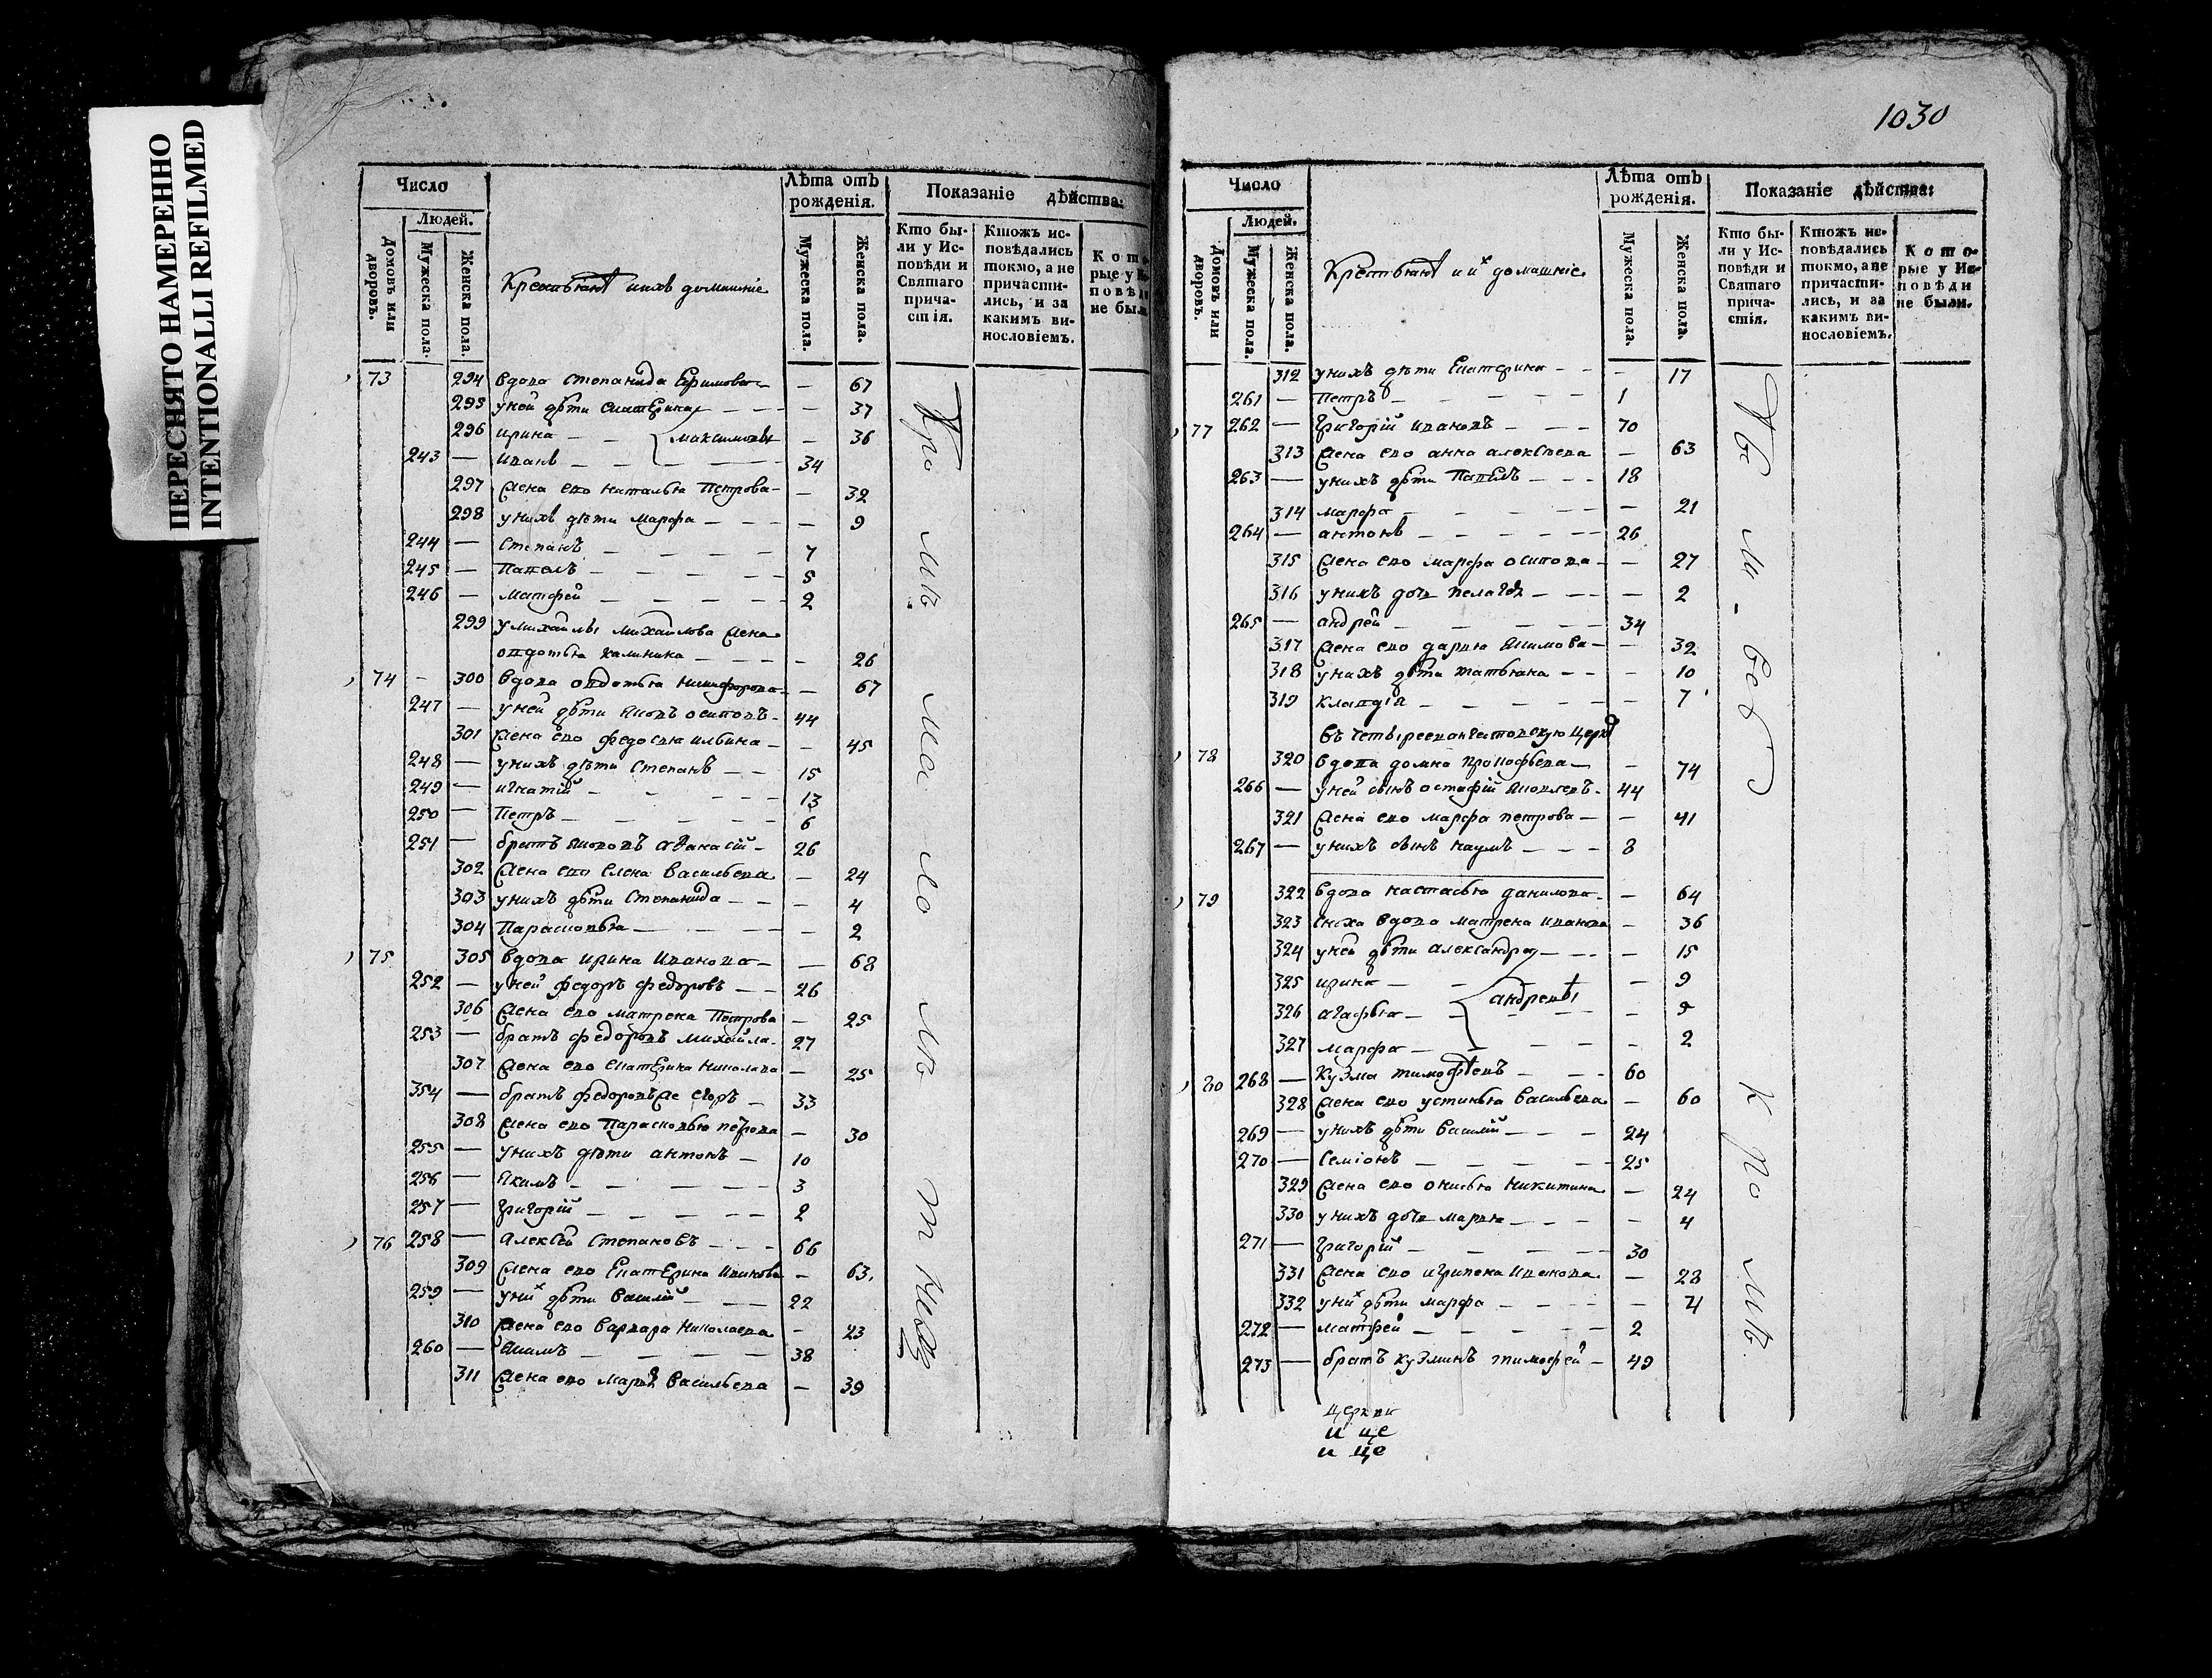 ПЕРЕСНЯТО НАМЕРЕННО
INTENTIONALLI REFILMED
Число
Людей.
Домовъ или дворовъ.
Мужеска пола.
Женска пола.
Крестьянѣ и ихъ домашніе
Лѣта отъ рожденія.
Мужеска пола.
Женска пола.
Показаніе дѣйства:
Кто были у Исповѣди и Святаго причастія.
Ктожъ исповѣдались токмо, а не причастились, и за какимъ винословіемъ.
Которые у Исповѣди не был
73 294 вдова степанида Ефимова — 67
295 уней дѣти екатерина — 37
296 ирина — максимовы — 36
243 — иванъ — 34
297 жена ево наталья Петрова — 32
298 унихъ дѣти марфа — 9
244 — степанъ — 7
245 — Павелъ — 5
246 — матфей — 2
299 умихайлы михайлова жена
овдотья калинина — 26
74 - 300 вдова овдотья никифорова — 67
247 — уней дѣти яковъ осиповъ - 44
301 жена ево федосья ильина — 45
248 — унихъ дѣти степанъ — 15
249 — игнатій — 13
250 — Петръ — 6
251 — братъ яковъ афанасій - 26
302 жена ево елена васильева — 24
303 унихъ дѣти степанида — 4
304 Парасковья — 2
75 305 вдова ирина иванова — 68
252 — уней федоръ федоровъ — 26
306 жена ево матрена Петрова — 25
253 — братъ федоровъ михайла - 27
307 жена ево екатерина николаева — 25
354 — братъ федоровъ же егоръ — 33
308 жена ево Парасковья петрова — 30
255 — унихъ дѣти антонъ — 10
256 — якимъ — 3
257 — григорій — 2
76 258 — алексѣй степановъ — 66
309 жена ево Екатерина иванова — 63
259 — унихъ дѣти василій — 22
310 жена ево варвара николаева — 23
260 — якимъ — 38
311 жена ево марья васильева — 39
1030
Число
Людей.
Домовъ или дворовъ.
Мужеска пола.
Женска пола.
Крестьянѣ и их домашніе
Лѣта отъ рожденія.
Мужеска пола.
Женска пола.
Показаніе дѣйства:
Кто были у Исповѣди и Святаго причастія.
Ктожъ исповѣдались токмо, а не причастились, и за какимъ винословіемъ.
Которые у Исповѣди не были.
312 унихъ дѣти екатерина — 17
261 — Петръ — 1
77 262 — григорій ивановъ — 70
313 жена ево анна алексѣева — 63
263 — унихъ дѣти Павелъ — 18
314 марфа — 21
264 — антонъ — 26
315 жена ево марфа осипова — 27
316 унихъ дочь пелагѣя — 2
265 — андрей — 34
317 жена ево дарья якимова — 32
318 унихъ дѣти татьяна — 10
319 клавдія — 7
въ четыреевангестовскую церк
78 320 вдова домна прокофьева — 74
266 — уней сынъ остафій яковлевъ - 44
321 жена ево марфа петрова — 41
267 — унихъ сынъ наумъ — 8
79 322 вдова настасья данилова — 64
323 сноха вдова матрена иванова — 36
324 уней дѣти александра — 15
325 ирина — 9
326 агафья — андреевы — 5
327 марфа — 2
80 268 — кузма тимофѣевъ — 60
328 жена ево устинья васильева — 60
269 — унихъ дѣти василій — 24
270 — семіонъ — 25
329 жена ево онисья никитина — 24
330 унихъ дочь марья — 4
271 — григорій — 30
331 жена ево агрипена иванова — 28
332 унихъ дѣти марфа — 4
272 — матфей — 2
273 — братъ кузминъ тимофей — 49
церкви
и це
и це